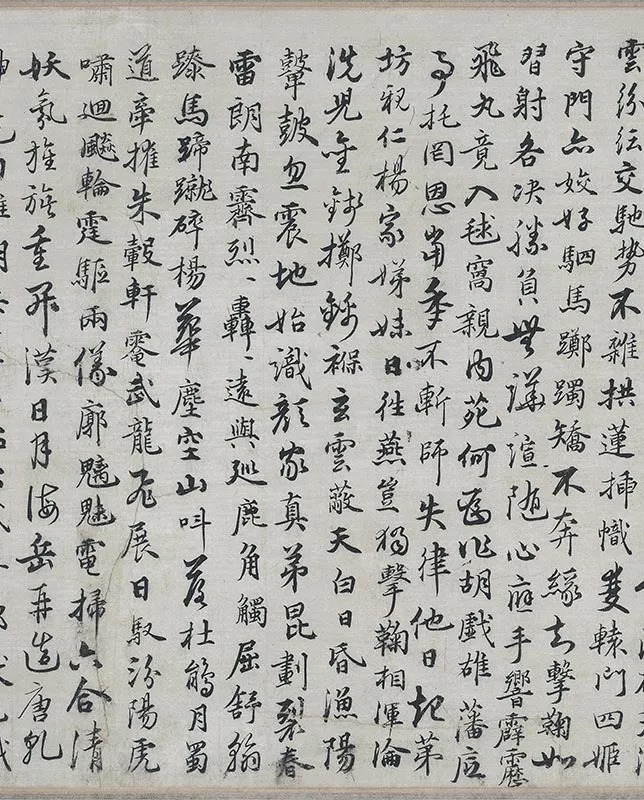 雲紛紜交馳勢不雜拱蓮插幟雙轅門四姬
守門亦姣好駟馬躑躅矯不奔緣知擊鞠如
習射各決勝負無譁諠随心應手響霹靂
飛丸竟入毬窩親內苑何作胡戲雄藩應
事托罔恩當季不斬師失律他日起第
坊親仁楊家娣妹日往燕豈獨擊鞠相渾淪
洗兒金錢擲錦褓玄雲蔽天白日昏漁陽
鼙鼓忽震地始識顏家真弟昆劃裂春
雷朗南霽烈〻轟〻遠與巡鹿角觸屈舒翰
馬蹄蹴碎楊華塵空山叫落杜鵑月蜀
道牽摧朱轂軒靈武龍飛展日馭汾陽虎
嘯廻飈輪霆驅兩儀廓魑魅電掃六合清
妖氛旌旗重開漢日月海岳再造唐乾